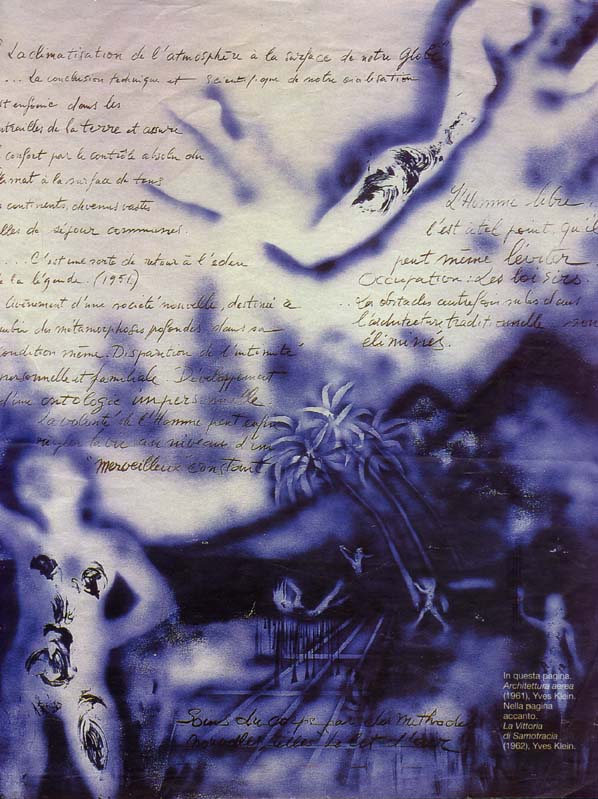 La climatisation de l'atmosphère à la surface de notre Globe
... La conclusion technique et scientifique de notre civilisation
est enfouie dans les
entrailles de la terre et assure
confort par le contrôle absolu du
climat à la surface de tous
continents, devenus vastes
salles de séjour communes.
... C'est une sorte de retour à l'éden
de la légende. (1951)
Avènement d'une société nouvelle, destinée à
métamorphoses profondes dans sa
condition même. Disparition de l'intimité
personnelle et familiale. Développement
d'une ontologie impersonnelle
la volonté de l'Homme peut enfin
régler la vie au niveau d'un
"merveilleux constant
L'Homme libre
l'est à tel point, qu'il
peut même léviter
Occupation: Les loisirs.
... Les obstacles autrefois subis dans
l'architecture traditionnelle sont
éliminés.
Soins du corps par des méthodes
nouvelles, telles le lit d'air
In questa pagina.
Architettura aerea
(1961), Yves Klein.
Nella pagina
accanto.
La Vittoria
di Samotracia
(1962), Yves Klein.